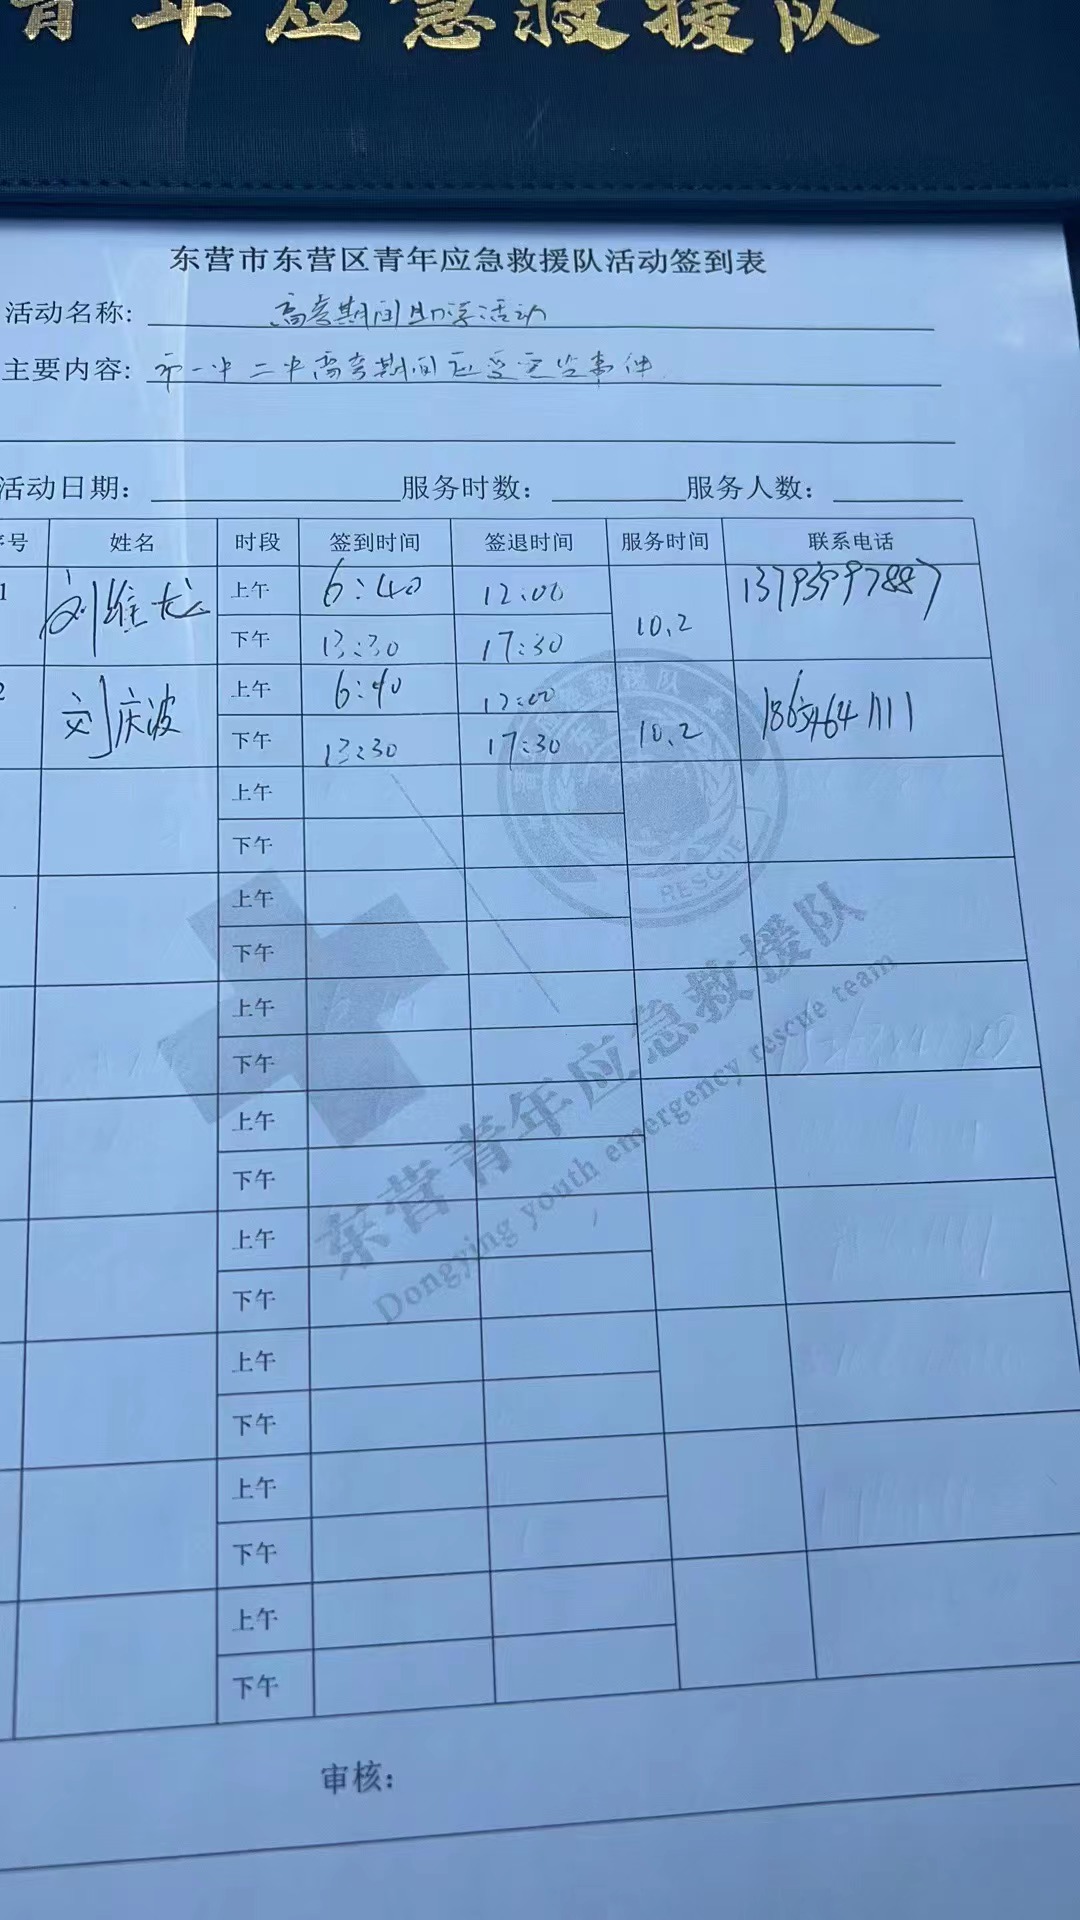 青年应急救援队
东营市东营区青年应急救援队活动签到表
活动名称: 高考期间助学活动
主要内容: 市一中二中高考期间应急突发事件
活动日期: 服务时数: 服务人数:
序号 姓名 时段 签到时间 签退时间 服务时间 联系电话
1 刘维龙 上午 6:40 12:00 10.2 13793997887
下午 13:30 17:30
2 刘庆波 上午 6:40 12:00 10.2
下午 13:30 17:30
上午
下午
上午
下午
上午
下午
上午
下午
上午
下午
上午
下午
上午
下午
上午
下午
RESCUE
东营青年应急救援队
Dongying youth emergency rescue team
审核: